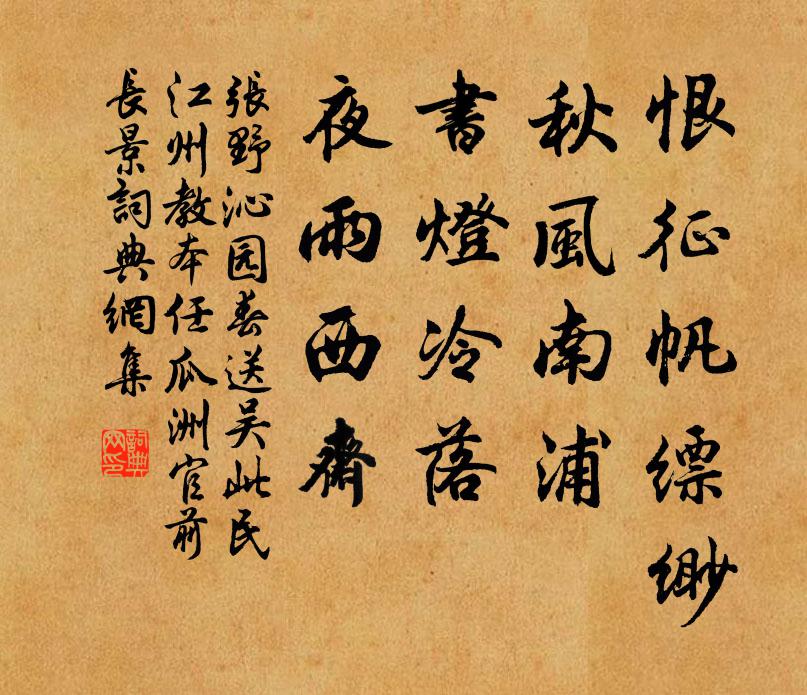 恨征帆縹緲
秋風南浦
書燈冷落
夜雨西齋
張野沁园春送吴此民
江州教本任瓜洲官前
長景詞典網集
詞典网印